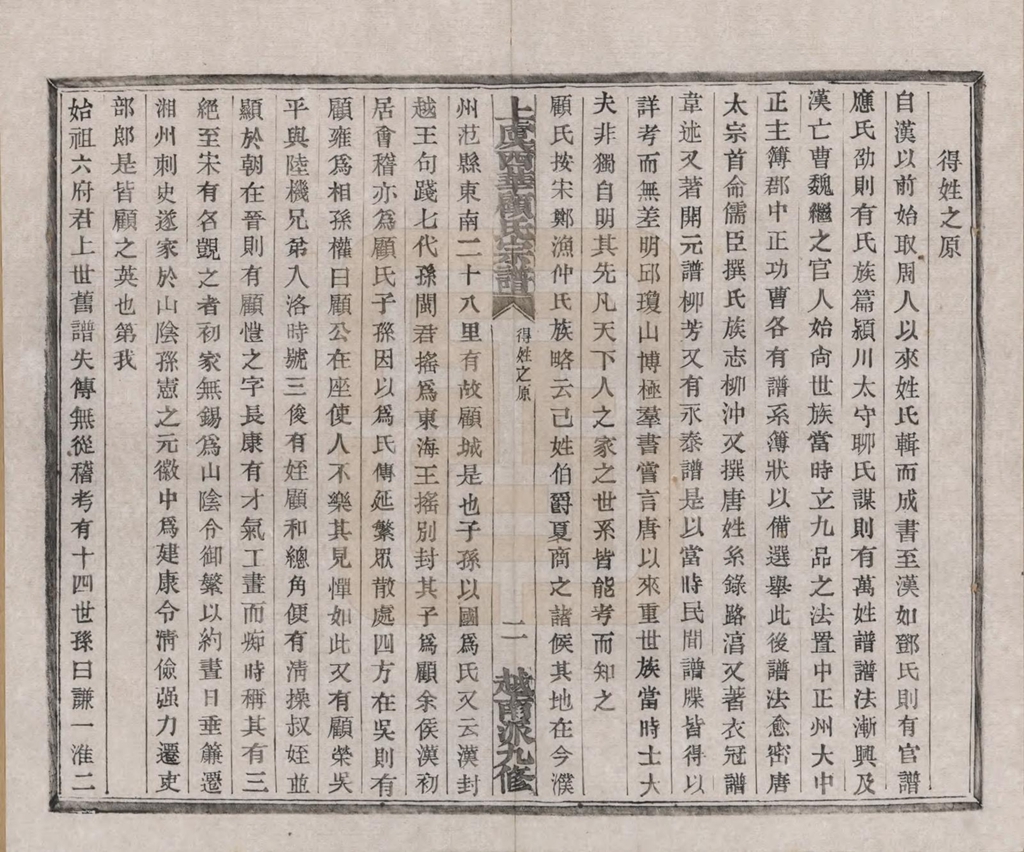 得姓之原
自漢以前始取周人以來姓氏輯而成書至漢如鄧氏則有官譜
應氏劭則有氏族篇潁川太守聊氏謀則有萬姓譜譜法漸興及
漢亡曹魏繼之官人始尙世族當時立九品之法置中正州大中
正主簿郡中正功曹各有譜系簿狀以備選舉此後譜法愈密唐
太宗首命儒臣撰氏族志柳沖又撰唐姓系錄路淳又著衣冠譜
韋述又著開元譜柳芳又有永泰譜是以當時民間譜牒皆得以
詳考而無差明邱瓊山博極羣書嘗言唐以來重世族當時士大
夫非獨自明其先凡天下人之家之世系皆能考而知之
顧氏按宋鄭漁仲氏族略云己姓伯爵夏商之諸侯其地在今濮
上虞西華顧氏宗譜
得姓之原
二
越南派九修
州范縣東南二十八里有故顧城是也子孫以國爲氏又云漢封
越王句踐七代孫閩君搖爲東海王搖別封其子爲顧余侯漢初
居會稽亦爲顧氏子孫因以爲氏傳延繁眾散處四方在吳則有
顧雍爲相孫權曰顧公在座使人不樂其見憚如此又有顧榮吳
平與陸機兄弟入洛時號三俊有姪顧和總角便有淸操叔姪並
顯於朝在晉則有顧愷之字長康有才氣工畫而痴時稱其有三
絕至宋有名覬之者初家無錫爲山陰令御繁以約晝日垂簾遷
湘州刺史遂家於山陰孫憲之元徽中爲建康令淸儉强力遷吏
部郎是皆顧之英也第我
始祖六府君上世舊譜失傳無從稽考有十四世孫曰謙一淮二